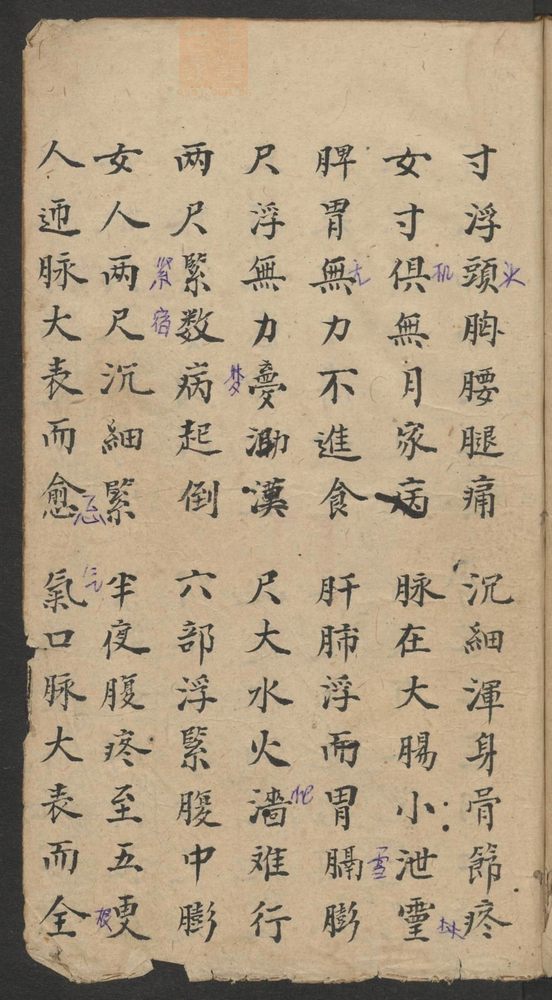 寸浮頭胸腰腿痛 沉細渾身骨節疼
女寸俱無月家病 脉在大腸小泄靈
脾胃無力不進食 肝肺浮而胃膈膨
尺浮無力憂泑漠 尺大水火濇难行
两尺緊数病起倒 六部浮緊腹中膨
女人两尺沉細緊 半夜腹疼至五更
人迊脉大表而愈 氣口脉大表而全